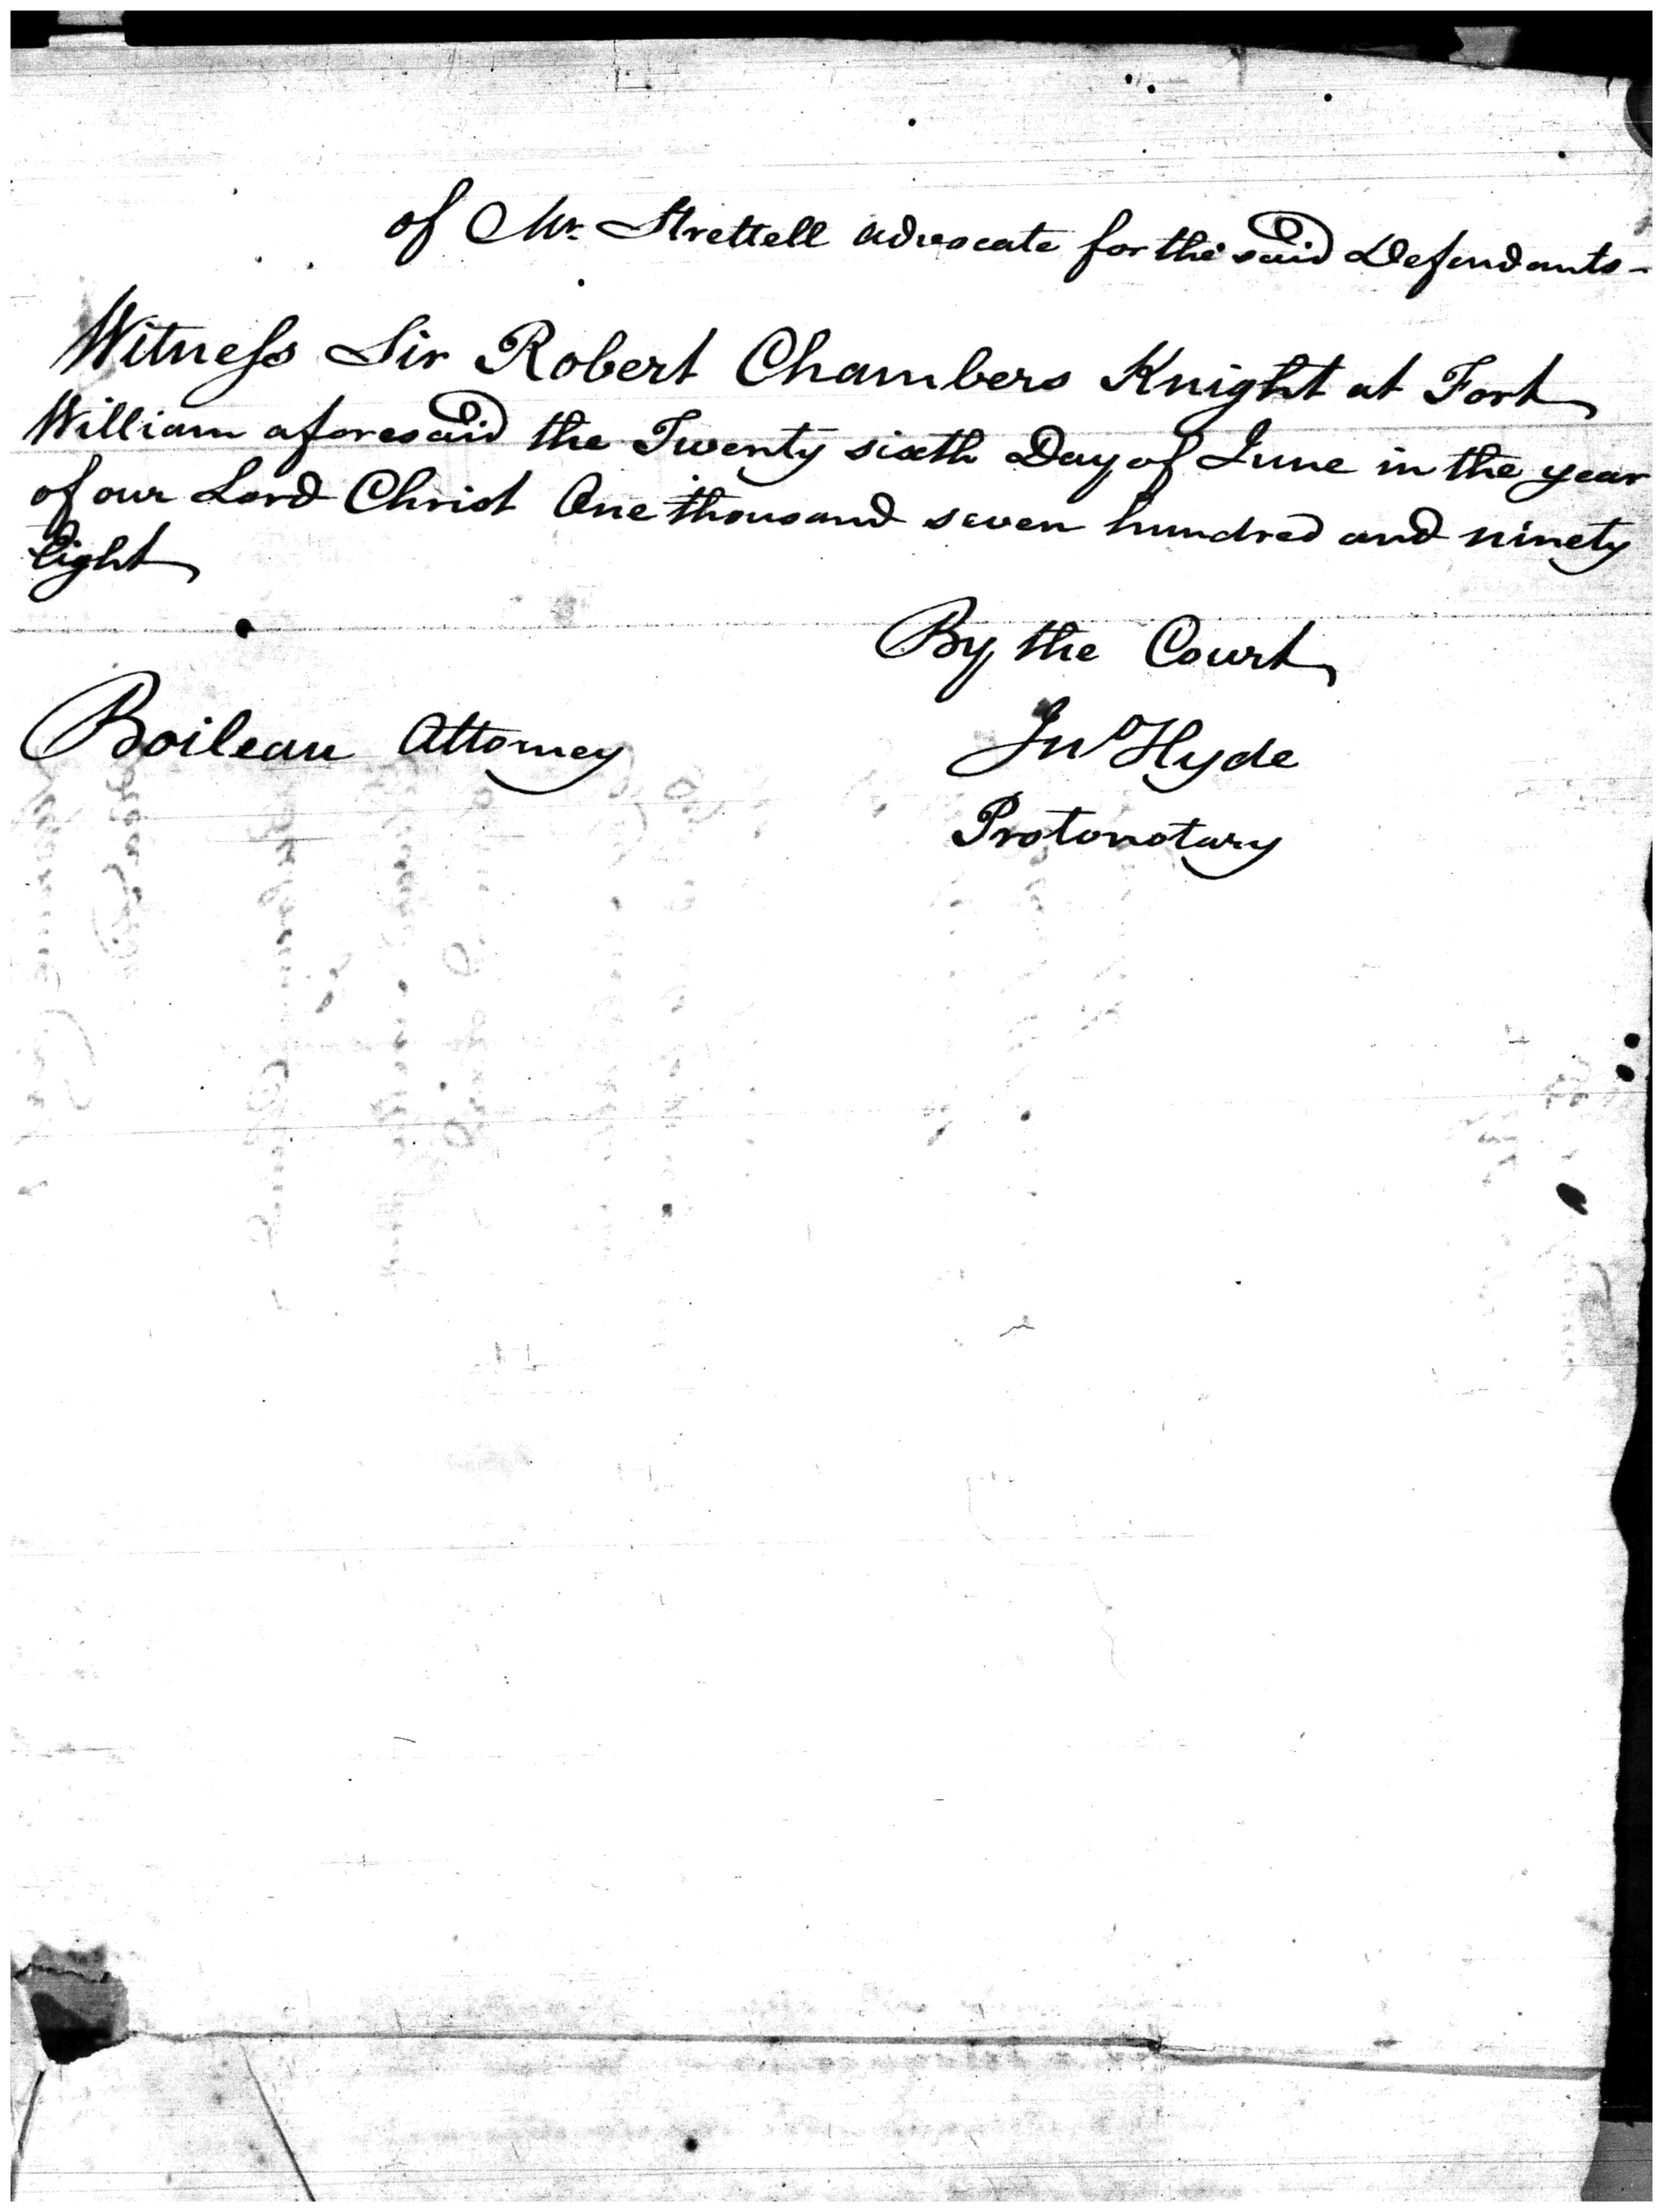 of Mr. Strettell advocate for the said Defendants -
Witness Sir Robert Chambers Knight at Fort
William aforesaid the Twenty sixth Day of June in the year
of our Lord Christ One thousand seven hundred and ninety
Eight
By the Court
Boileau Attorney
Jno Hyde
Protonotary